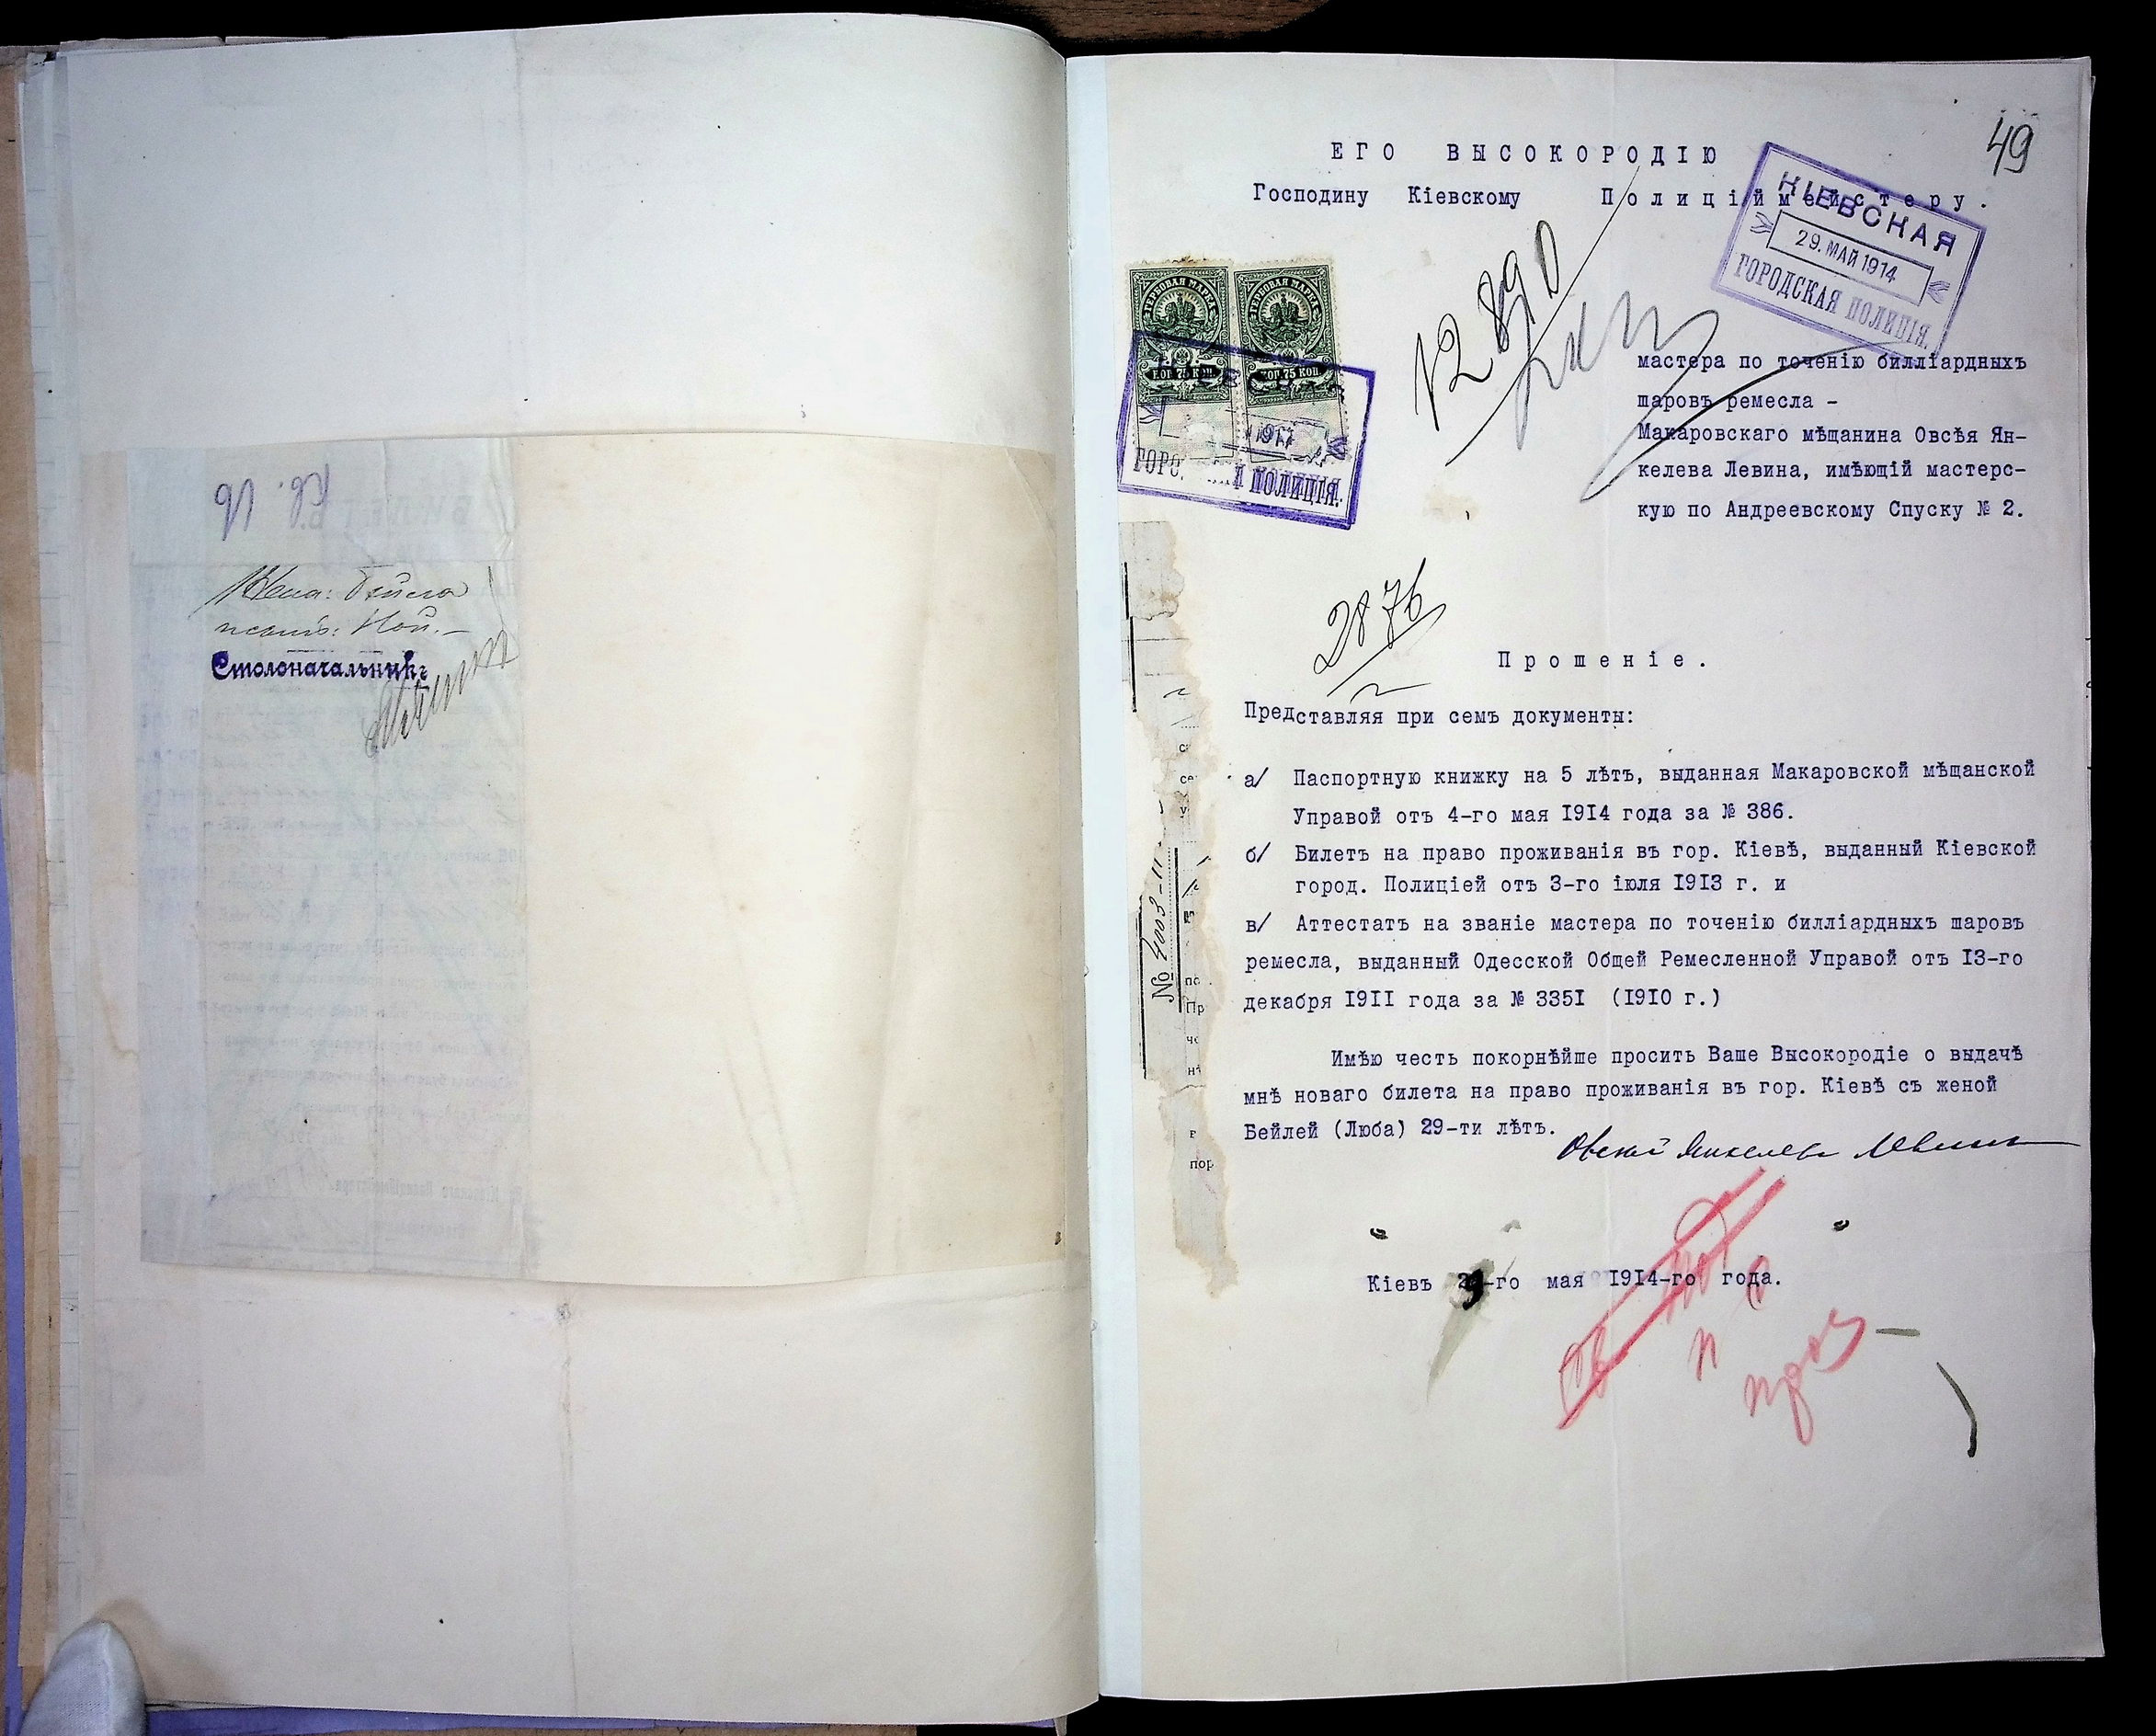 Жена: Бейла
Столоначальникъ
49
ЕГО ВЫСОКОРОДІЮ
Господину Кіевскому Полиціймейстеру.
КІЕВСКАЯ
29. МАЙ 1914
ГОРОДСКАЯ ПОЛИЦІЯ.
ГЕРБОВАЯ МАРКА ГЕРБОВАЯ МАРКА
КОП 75 КОП КОП 75 КОП
ПОЛИЦІЯ.
12890
мастера по точенію билліардныхъ
шаровъ ремесла -
Макаровскаго мѣщанина Овсѣя Ян-
келева Левина, имѣющій мастерс-
кую по Андреевскому Спуску № 2.
2876
Прошеніе.
Представляя при семъ документы:
а/ Паспортную книжку на 5 лѣтъ, выданная Макаровской мѣщанской
Управой отъ 4-го мая 1914 года за № 386.
б/ Билетъ на право проживанія въ гор. Кіевѣ, выданный Кіевской
город. Полиціей отъ 3-го іюля 1913 г. и
в/ Аттестатъ на званіе мастера по точенію билліардныхъ шаровъ
ремесла, выданный Одесской Общей Ремесленной Управой отъ 13-го
декабря 1911 года за № 3351 (1910 г.)
Имѣю честь покорнѣйше просить Ваше Высокородіе о выдачѣ
мнѣ новаго билета на право проживанія въ гор. Кіевѣ съ женой
Бейлей (Люба) 29-ти лѣтъ.
Овсей Янкелевъ Левинъ
Кіевъ 29-го мая 1914-го года.